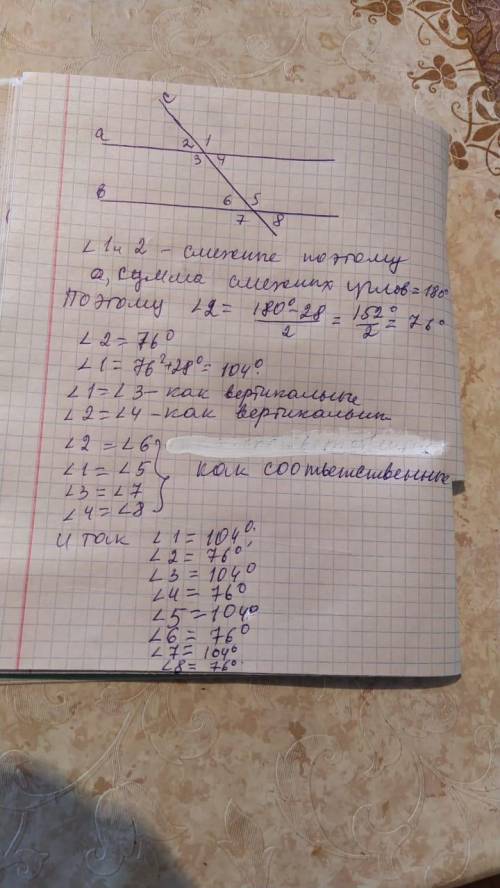 c
a 2 1
3 4
в 6 5
7 8
∠1 и 2 - смежные поэтому
а, сумма смежных углов = 180°
Поэтому ∠2 = (180° - 28)/2 = 152°/2 = 76°
∠2 = 76°
∠1 = 76° + 28° = 104°.
∠1 = ∠3 - как вертикальные
∠2 = ∠4 - как вертикальн
∠2 = ∠6
∠1 = ∠5 } как соответственные
∠3 = ∠7
∠4 = ∠8
Итак ∠1 = 104°.
∠2 = 76°
∠3 = 104°
∠4 = 76°
∠5 = 104°
∠6 = 76°
∠7 = 104°
∠8 = 76°